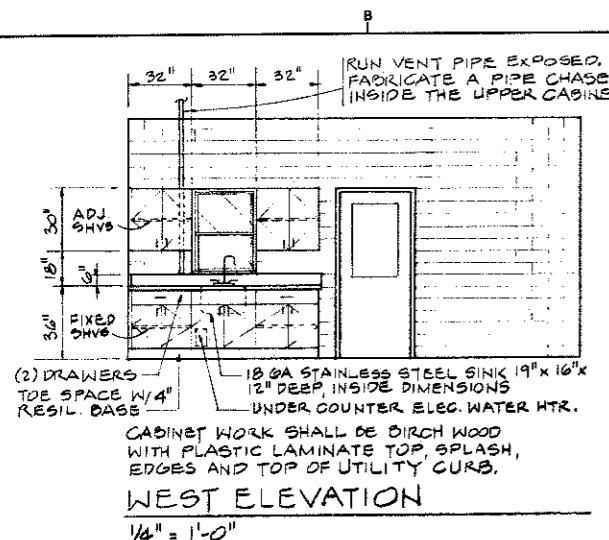 B
RUN VENT PIPE EXPOSED.
FABRICATE A PIPE CHASE
INSIDE THE UPPER CABINE
32" 32" 32"
30"
ADJ.
SHVS
18"
6"
36"
FIXED
SHVS
(2) DRAWERS
TOE SPACE W/4"
RESIL. BASE
18 GA STAINLESS STEEL SINK 19" x 16" x
12" DEEP, INSIDE DIMENSIONS
UNDER COUNTER ELEC. WATER HTR.
CABINET WORK SHALL BE BIRCH WOOD
WITH PLASTIC LAMINATE TOP, SPLASH,
EDGES AND TOP OF UTILITY CURB.
WEST ELEVATION
1/4" = 1'-0"